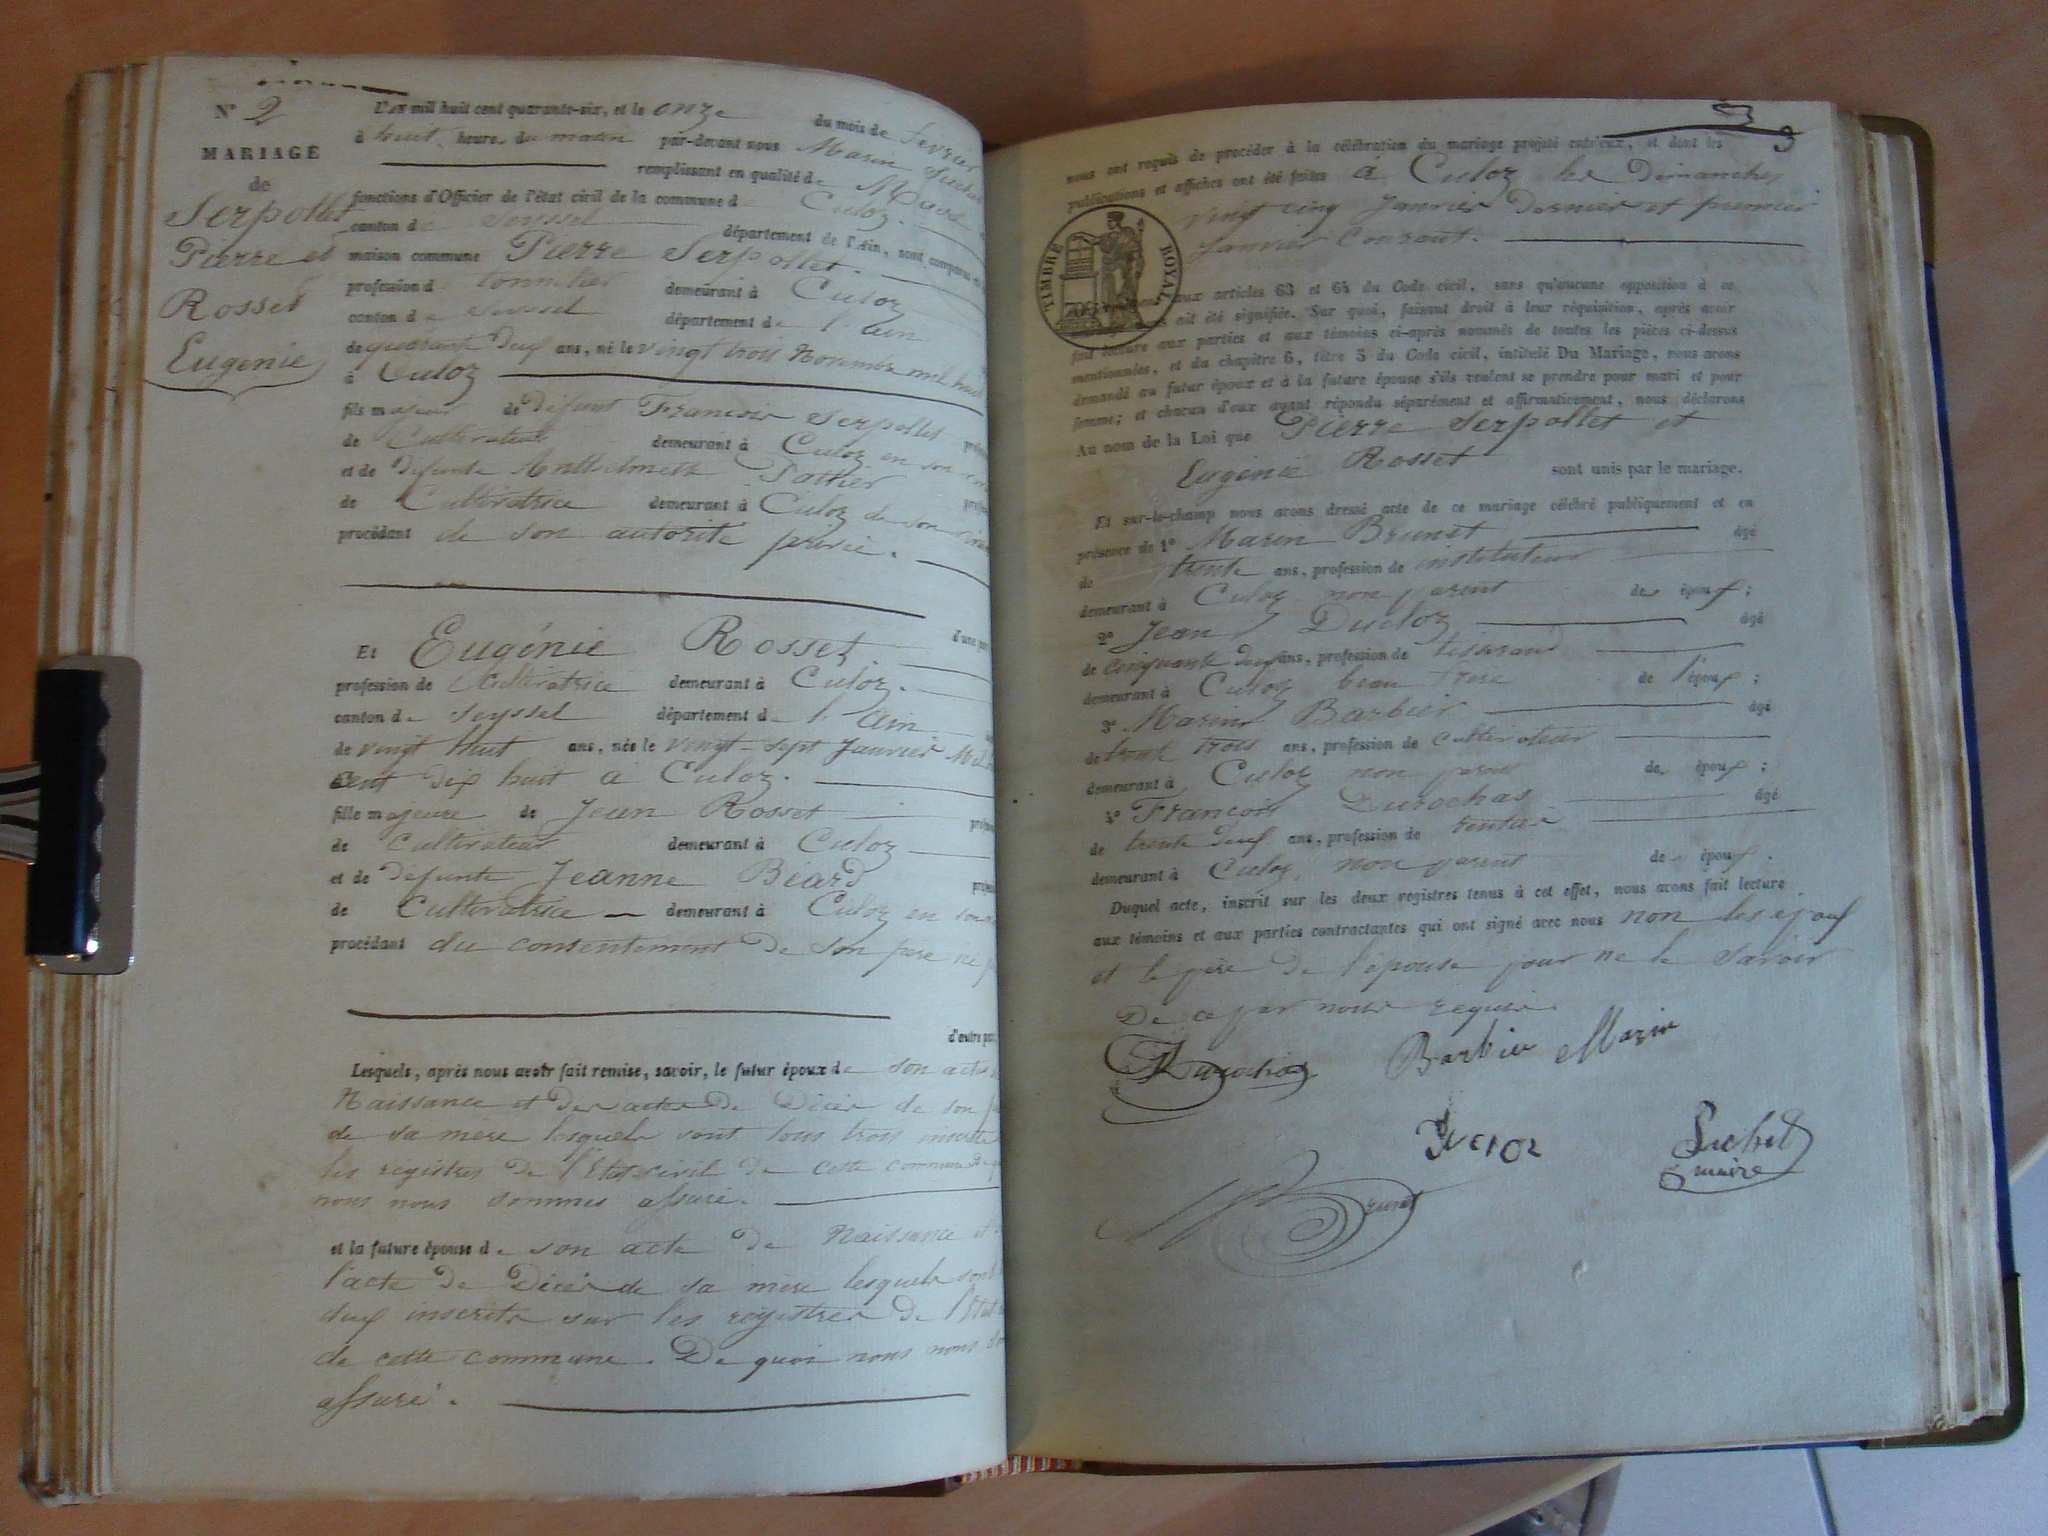 N° 2
MARIAGE
de
Serpollet
Pierre et
Rosset
Eugénie
L'an mil huit cent quarante-six, et le onze du mois de février
à huit heure du matin par-devant nous Marin Suchet
remplissant en qualité de Maire
fonctions d'Officier de l'état civil de la commune de Culoz.
canton de Seyssel département de l'Ain, sont comparus
maison commune Pierre Serpollet.
profession de tonnelier demeurant à Culoz
canton de Seyssel département de l'ain
de quarante deux ans, né le vingt trois Novembre mil huit
à Culoz
fils majeur de défunt François Serpollet
de Cultivateur demeurant à Culoz en son
et de défunte Anthelmette Pattier
de Cultivatrice demeurant à Culoz de son
procédant de son autorité privée.
d'une part
Et Eugénie Rosset
profession de Cultivatrice demeurant à Culoz.
canton de Seyssel département de l'ain
de vingt huit ans, née le vingt-sept Janvier Mil
cent dix huit à Culoz.
fille majeure de Jean Rosset
de Cultivateur demeurant à Culoz
et de défunte Jeanne Béard
de Cultivatrice demeurant à Culoz en son
procédant du consentement de son père
d'autre part
Lesquels, après nous avoir fait remise, savoir, le futur époux de son acte
Naissance et des actes de Décès de son
de sa mère lesquels sont tous trois inscrits
les régistres de l'Etat civil de cette commune
nous nous sommes assuré.
et la future épouse de son acte de Naissance et
l'acte de Décès de sa mère lesquels sont
deux inscrits sur les régistres de l'Etat
de cette commune. De quoi nous nous
assuré.
3
nous ont requis de procéder à la célébration du mariage projeté entr'eux, et dont les
publications et affiches ont été faites à Culoz les Dimanches
vingt cinq Janvier Dernier et premier
Janvier Courant.
TIMBRE ROYAL
aux articles 63 et 64 du Code civil, sans qu'aucune opposition à ce
ait été signifiée. Sur quoi, faisant droit à leur réquisition, après avoir
fait lecture aux parties et aux témoins ci-après nommés de toutes les pièces ci-dessus
mentionnées, et du chapitre 6, titre 5 du Code civil, intitulé Du Mariage, nous avons
demandé au futur époux et à la future épouse s'ils veulent se prendre pour mari et pour
femme; et chacun d'eux ayant répondu séparément et affirmativement, nous déclarons
Au nom de la Loi que Pierre Serpollet et
Eugénie Rosset sont unis par le mariage.
Et sur-le-champ nous avons dressé acte de ce mariage célébré publiquement et en
présence de 1° Marin Brunet âgé
de trente ans, profession de instituteur
demeurant à Culoz non parent des époux;
2° Jean Ducloz âgé
de cinquante deux ans, profession de tisserand
demeurant à Culoz beau frère de l'époux;
3° Marin Barbier âgé
de trente trois ans, profession de cultivateur
demeurant à Culoz non parent des époux;
4° François Durochas âgé
de trente deux ans, profession de rentier
demeurant à Culoz, non parent des époux.
Duquel acte, inscrit sur les deux registres tenus à cet effet, nous avons fait lecture
aux témoins et aux parties contractantes qui ont signé avec nous non les époux
et le père de l'épouse pour ne le savoir
De ce par nous requis
Durochas Barbier Marin
Suchet
maire
Brunet